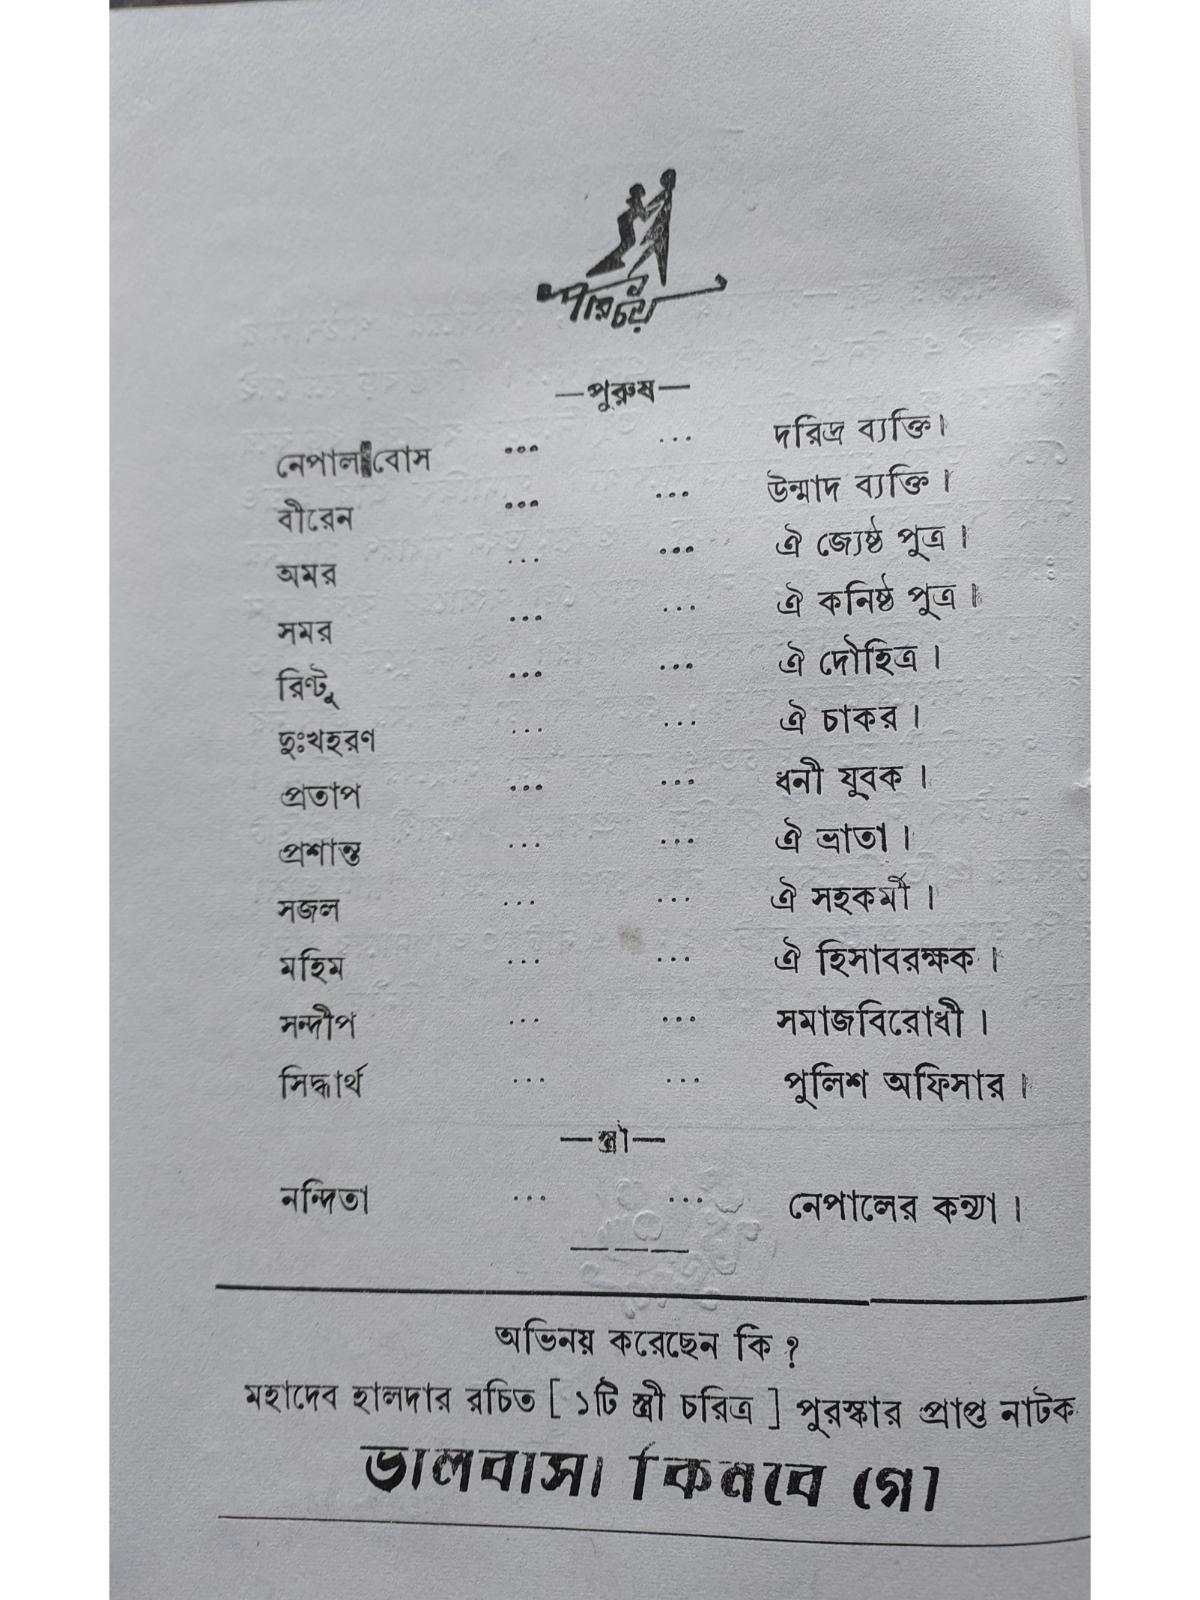 পরিচয়
—পুরুষ—
নেপাল বোস ... ... দরিদ্র ব্যক্তি।
বীরেন ... ... উন্মাদ ব্যক্তি।
অমর ... ... ঐ জ্যেষ্ঠ পুত্র।
সমর ... ... ঐ কনিষ্ঠ পুত্র।
রিণ্টু ... ... ঐ দৌহিত্র।
দুঃখহরণ ... ... ঐ চাকর।
প্রতাপ ... ... ধনী যুবক।
প্রশান্ত ... ... ঐ ভ্রাতা।
সজল ... ... ঐ সহকর্মী।
মহিম ... ... ঐ হিসাবরক্ষক।
সন্দীপ ... ... সমাজবিরোধী।
সিদ্ধার্থ ... ... পুলিশ অফিসার।
—স্ত্রী—
নন্দিতা ... ... নেপালের কন্যা।
অভিনয় করেছেন কি ?
মহাদেব হালদার রচিত [ ১টি স্ত্রী চরিত্র ] পুরস্কার প্রাপ্ত নাটক
ভালবাসা কিনবে গো